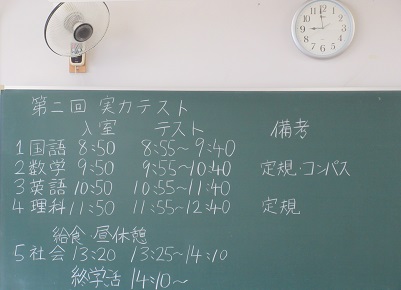 第二回 実力テスト
入室 テスト 備考
1 国語 8:50 8:55~9:40
2 数学 9:50 9:55~10:40 定規・コンパス
3 英語 10:50 10:55~11:40
4 理科 11:50 11:55~12:40 定規
給食 昼休憩
5 社会 13:20 13:25~14:10
終学活 14:10~